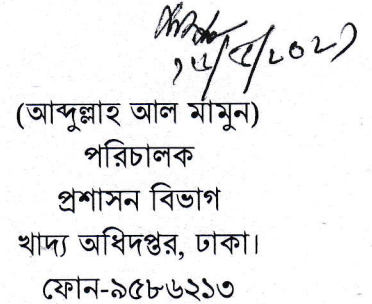 (আব্দুল্লাহ আল মামুন)
পরিচালক
প্রশাসন বিভাগ
খাদ্য অধিদপ্তর, ঢাকা।
ফোন-৯৫৮৬২১৩